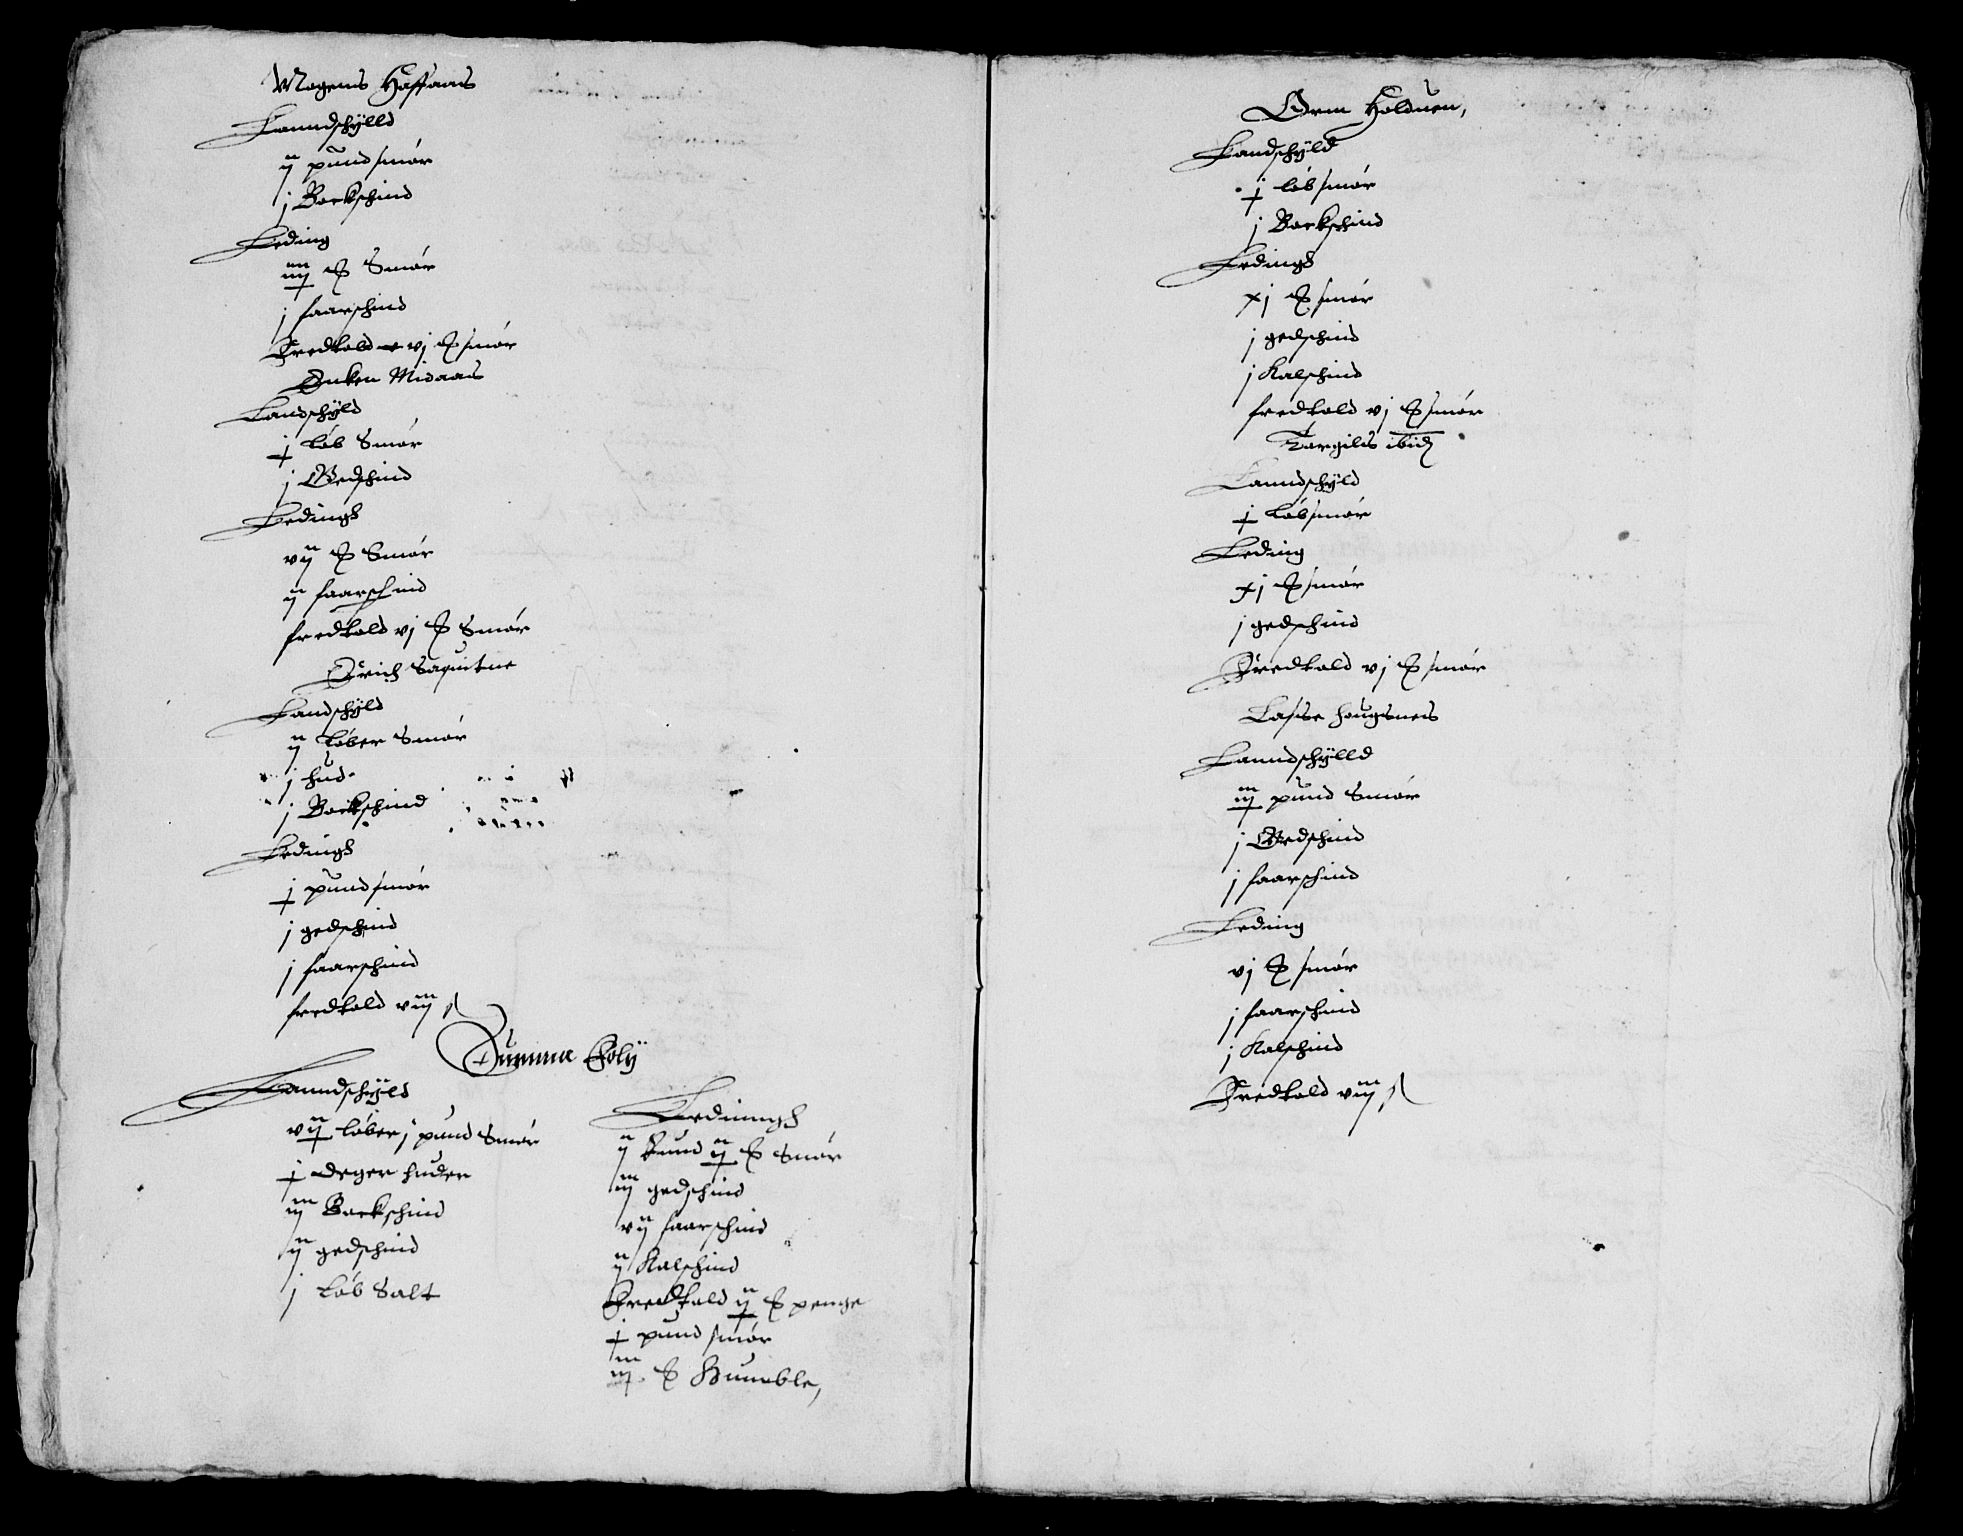 Mogens Haffaas
Lanndschylld
ij pund smør
j Bockschind
Leding
iiij ℔ Smør
j faarschind
Fredtold vj ℔ smør
Enken Midaas
Landschyld
j løb Smør
j Gedschind
Ledingh
vij ℔ Smør
ij faarschind
fredtold vj ℔ Smør
Erich
Landschyld
ij løber Smør
j hud
j Bockschind
Ledingh
j pund smør
j gedschind
j faarschind
fredtold viij ß
Summa Foly
Lanndschyld
vij løber j pund Smør
j deger huder
iij Bockschind
ij gedschind
j Løb Salt
Ledinngh
ij Pund ij ℔ Smør
iij gedschind
vij faarschind
ij Kalschind
Fredtold ij ℔ penge
j pund smør
iij ℔ Humble,
Orm Holduen,
Landschyld
j løb smør
j Bockschind
Ledingh
xj ℔ smør
j gedschind
j Kalschind
fredtold vj ℔ smør
Torgils ibid
Lanndschyld
j Løb smør
Leding
xj ℔ smør
j gedschind
Fredtold vj ℔ smør
Lasse Hougsnes
Lanndschylld
iij pund Smør
j Gedschind
j faarschind
Leding
vj ℔ smør
j faarschind
j Kalschind
Fredtold viij ß